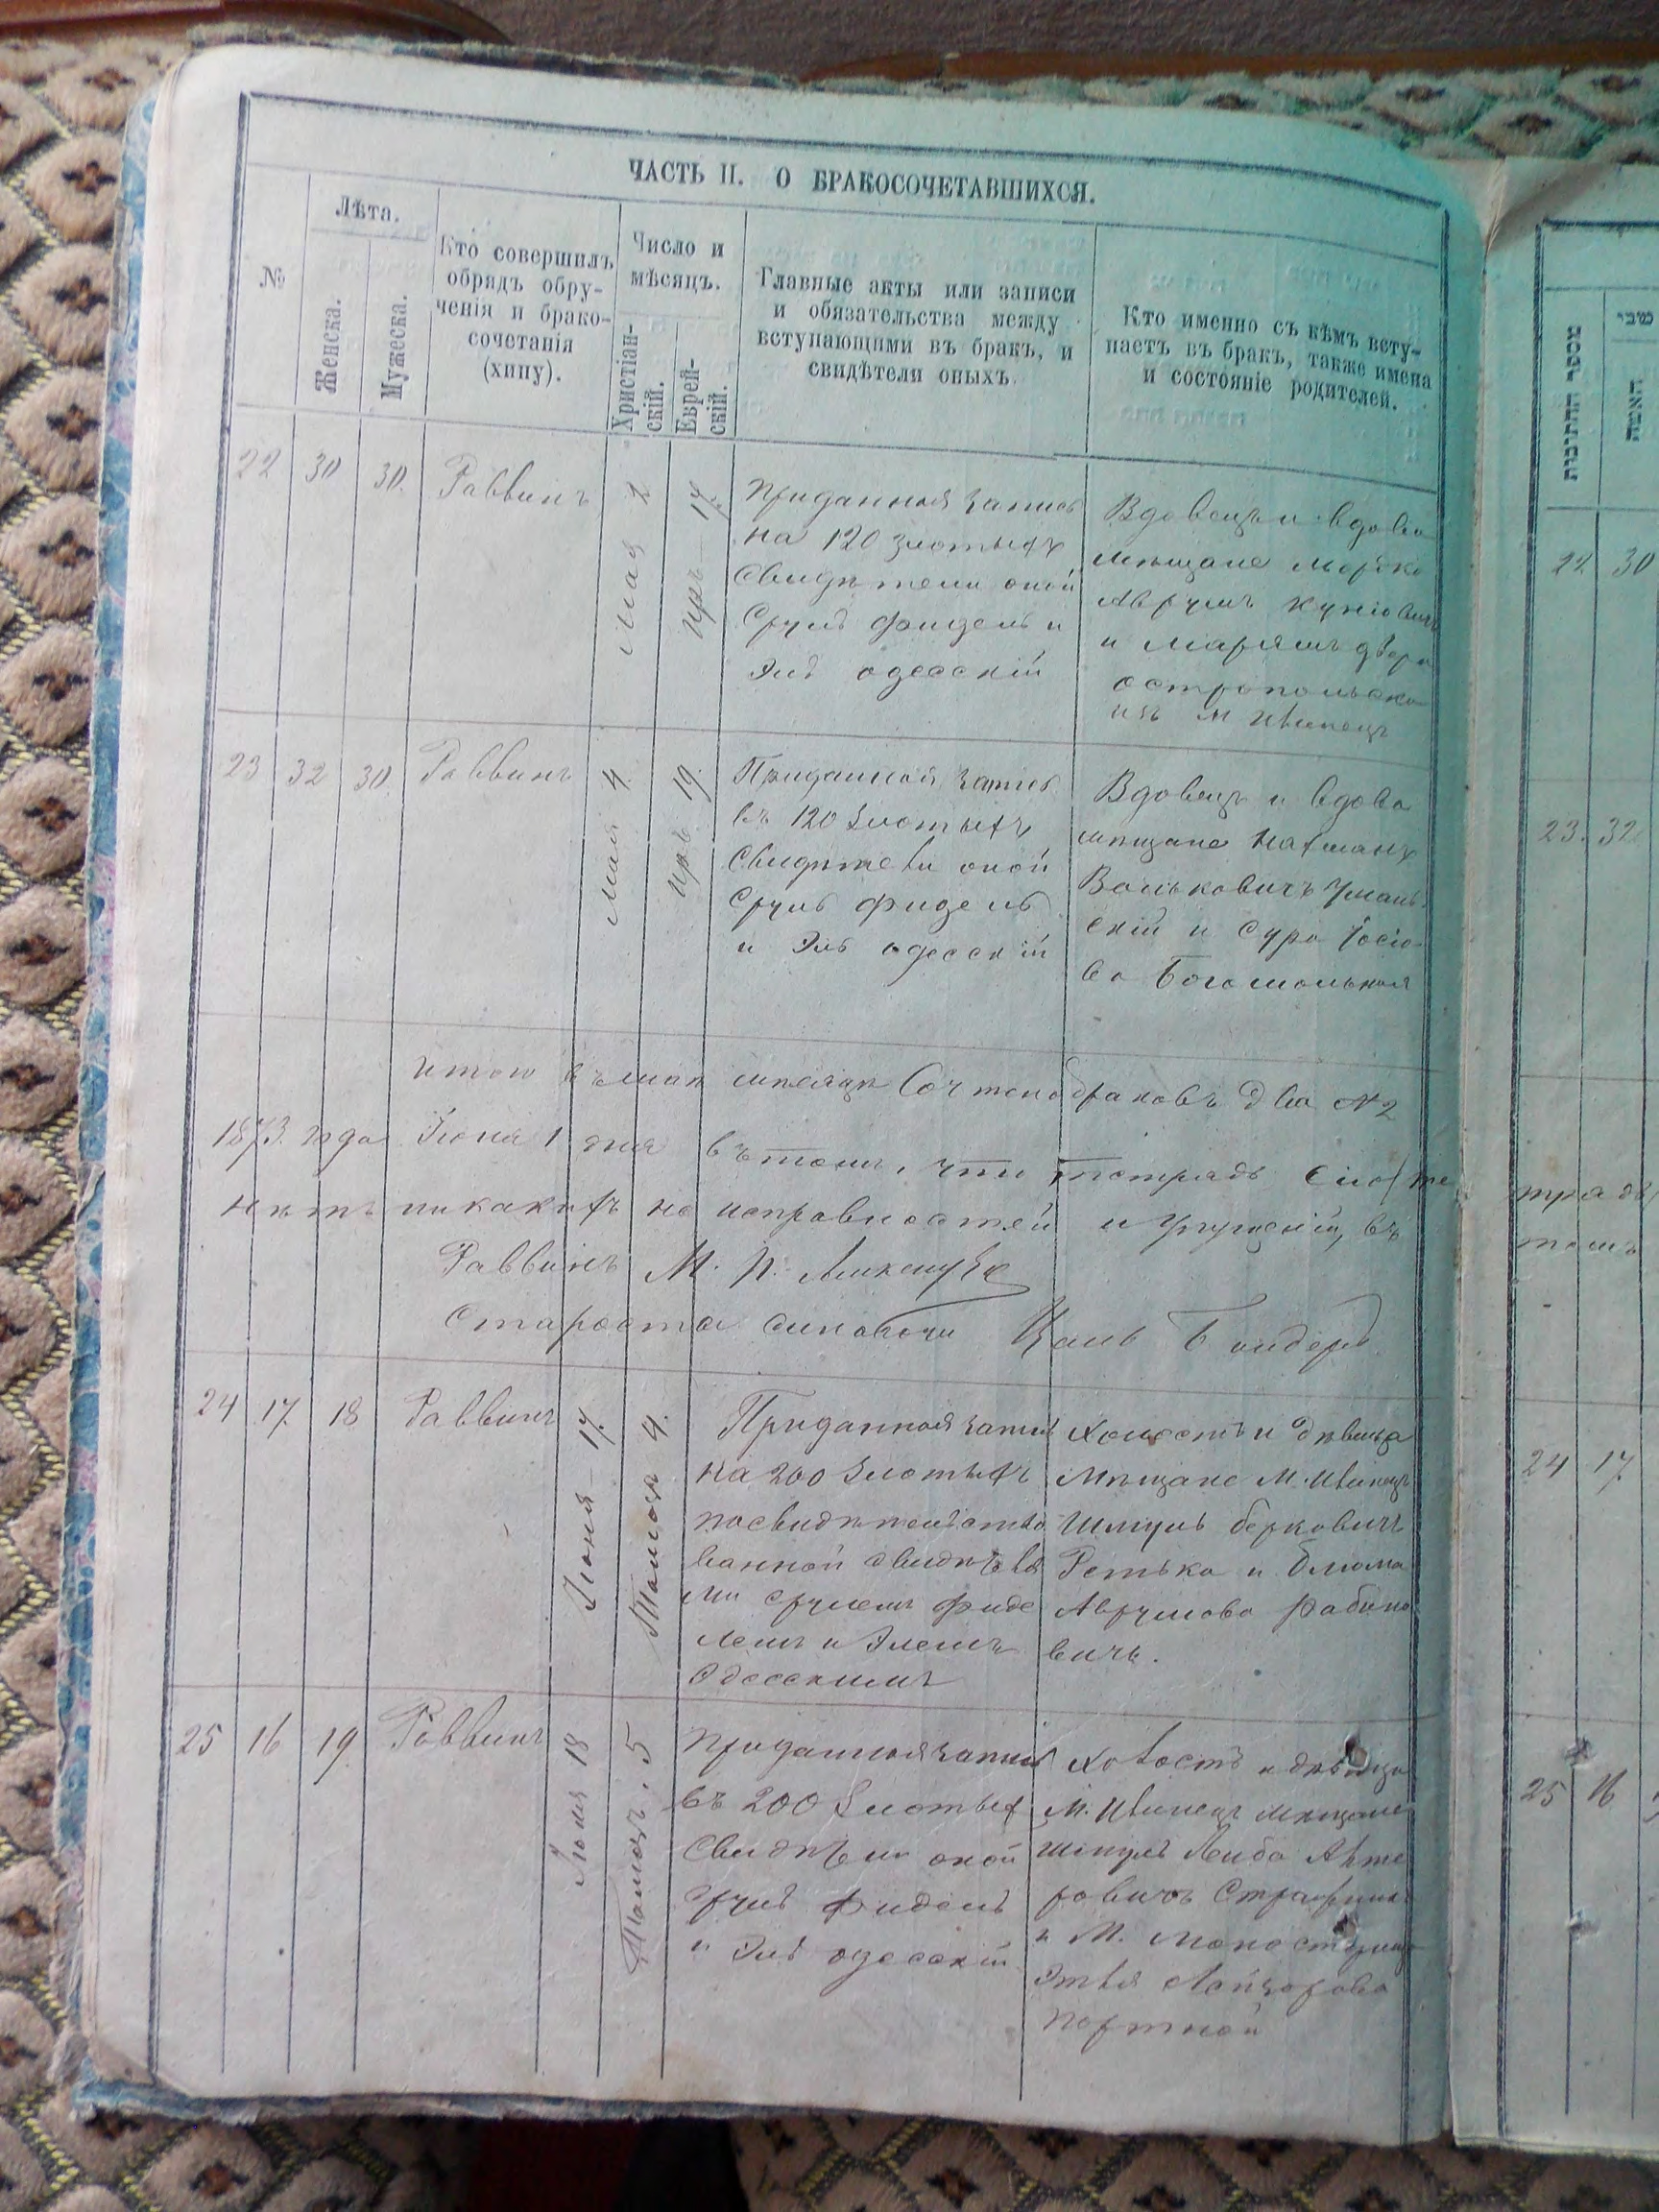 ЧАСТЬ II. О БРАКОСОЧЕТАВШИХСЯ.
№
Лѣта.
Женска.
Мужеска.
Кто совершилъ
обрядъ обру-
ченія и брако-
сочетанія
(хипу).
Число и
мѣсяцъ.
Христіан-
скій.
Еврей-
скій.
Главные акты или записи
и обязательства между
вступающими въ бракъ, и
свидѣтели оныхъ.
Кто именно съ кѣмъ всту-
паетъ въ бракъ, также имена
и состояніе родителей.
22 30 30. Раввинъ
мая 2
Иръ 17.
Приданная запись
на 120 злотыхъ
Свидѣтели оной
Сруль Фидель и
Эль одесскій
Вдовецъ и вдова
мѣщане
Аврумъ
и Маріямъ двора
островпольска
изъ м Ивинецъ
23 32 30. Раввинъ
мая 4.
Иръ 19.
Приданная запись
въ 120 злотыхъ
Свидѣтели оной
Сруль Фидель
и Эль одесскій
Вдовецъ и вдова
мѣщане Нахманъ
Вольковичъ Уман-
скій и Сура Іосіо-
ва Богомольная
итого въ маѣ мѣсяцѣ Сочтено браковъ два № 2
1873. года Іюня 1 дня въ томъ, что тетрадь сіо же
нѣтъ никакихъ не исправностей и упущеній, въ
Раввинъ М. П.
Староста Цаль Биндеръ
24 17. 18 Раввинъ
Іюня 17.
Тамозъ 4.
Приданная запись
на 200 злотыхъ
посвидѣтельство
ванной
ми Срулемъ Фиде
лемъ и Элемъ
Одесскимъ
Холостъ и дѣвица
Мѣщане М. Ивинецъ
Шмуль берковичъ
Ретька и блюма
Аврумова Рабино
вичъ.
25 16 19 Раввинъ
Іюня 18
Тамозъ. 5
приданная запись
въ 200 злотыхъ
Свидѣтели оной
Сруль Фидель
и Эль одесскій
Холостъ и дѣвица
М. Ивинецъ мѣщане
Шмуль Лейба
ровичъ
и М. Монастрище
Этля Лейзорова
портной
מספר החתונות
האשה
22 30
23. 32
традь
томъ
24 17
25 16